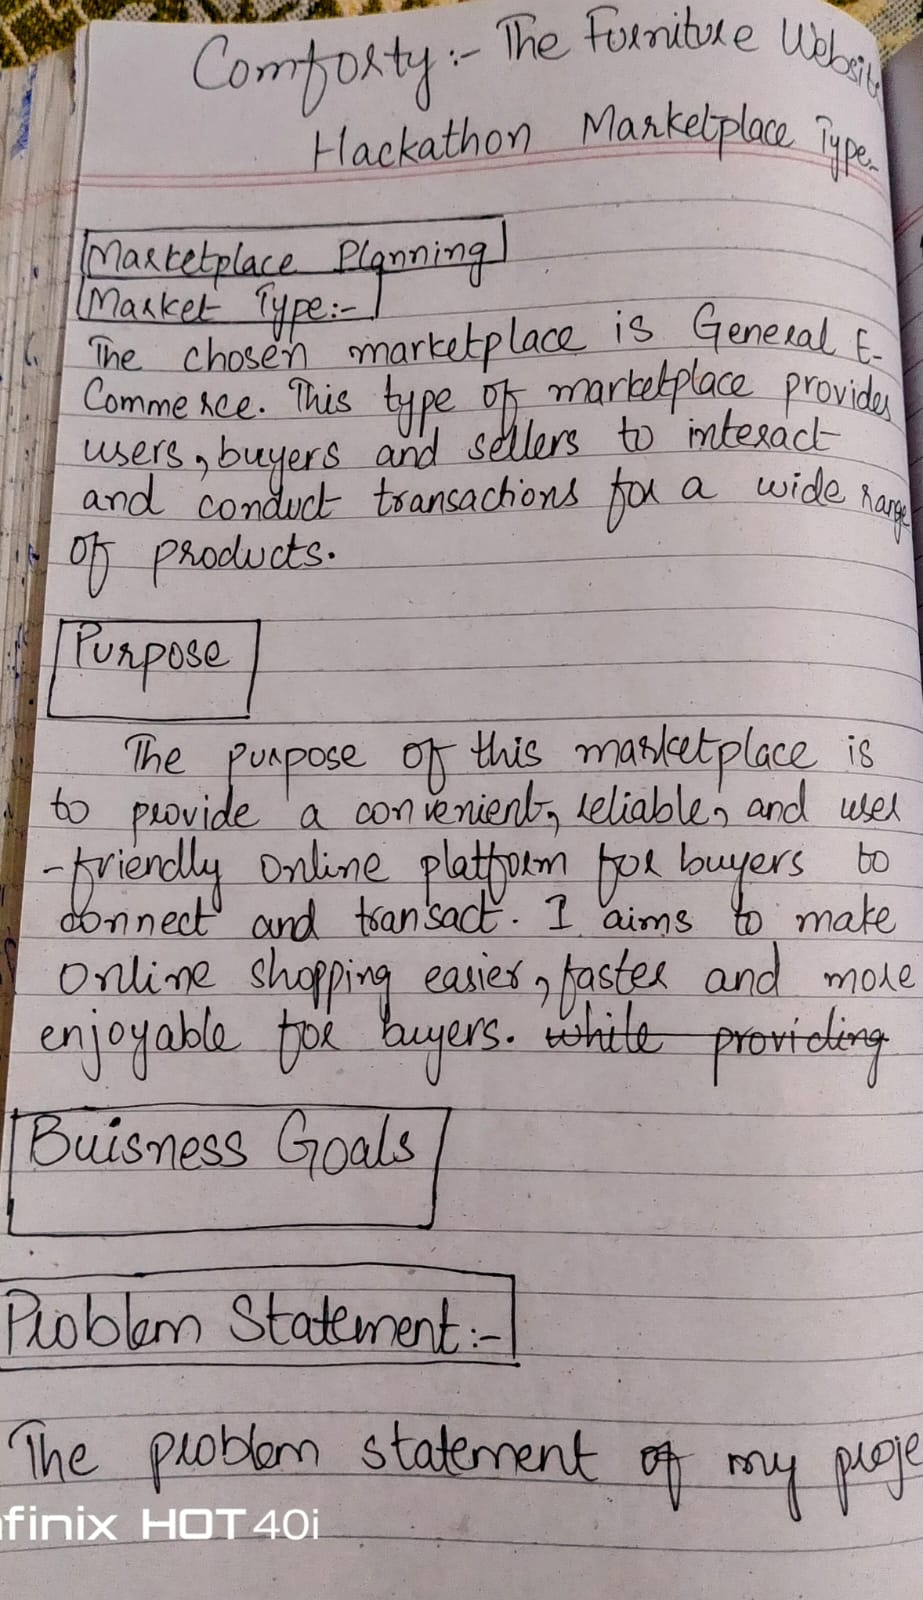 Comforty:- The Furniture Website
Hackathon Marketplace Type:-
Marketplace Planning
Market Type:-
The chosen marketplace is General E-
Commerce. This type of marketplace provides
users, buyers and sellers to interact
and conduct transactions for a wide range
of products.
Purpose
The purpose of this marketplace is
to provide a convenient, reliable, and user
-friendly online platform for buyers to
connect and transact. I aims to make
online shopping easier, faster and more
enjoyable for buyers. while providing
Buisness Goals
Problem Statement:-
The problem statement of my proje
nfinix HOT 40i